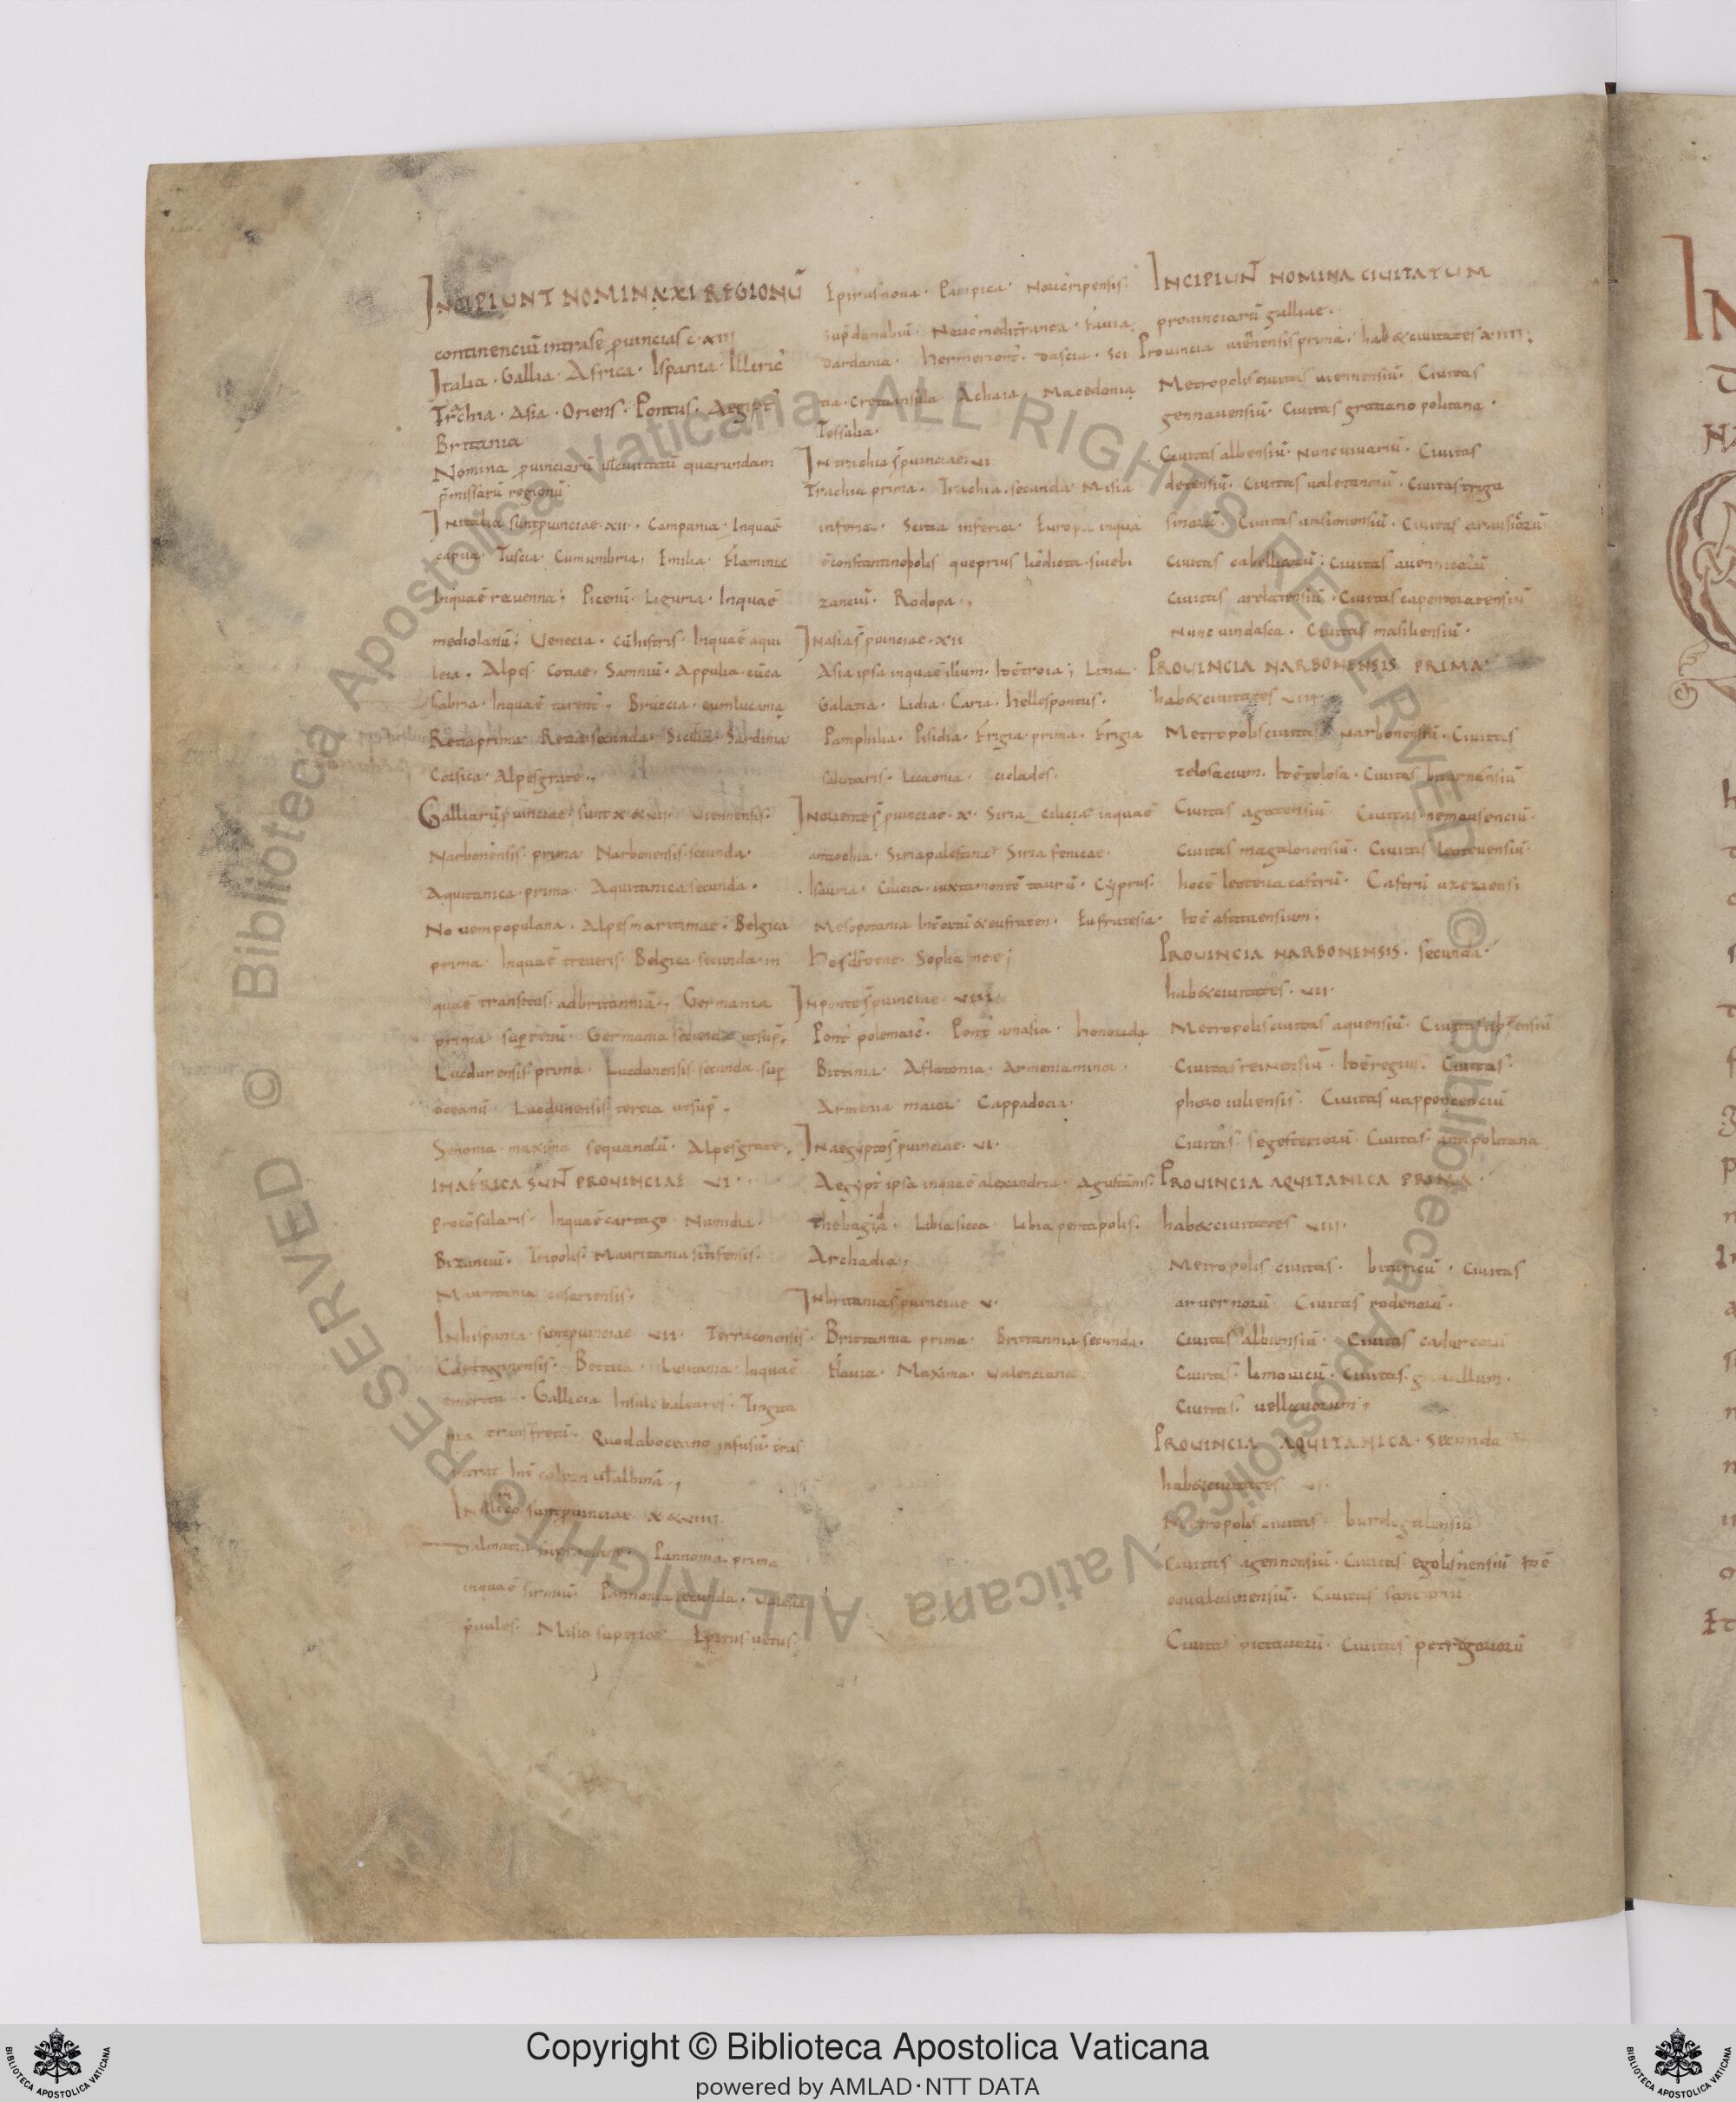 INCIPIUNT NOMINA XI REGIONŪ
continenciū intrase ꝓuincias c·xiii
Italia · Gallia · Africa · Ispania · Illiric̄
Trachia · Asia · Oriens · Pontus · Aegipt̄
Brittania
Nomina ꝓuinciarū uł ciuitatū quarundam
p̄missarū regionū
Initalia sunt ꝓuinciae · xii · Campania · Inquaē
capua · Tuscia · Cumumbria · Emilia · Flaminia
Inquaē rauenna ; Picenū · Liguria · Inquaē
mediolanū ; Uenecia · cū histris · Inquaē aqui
leia · Alpes · Cotiae · Samniū · Appulia · cū ca
labria · Inquaē tarent̄ ; Bruccia · cumlucania
Retia prima · Retia secunda · Sicilia · Sardinia
Corsica · Alpes grate ·,
Galliarū ꝓuinciae sunt x&vii · Uiennensis ·
Narbonensis · prima · Narbonensis · secunda ·
Aquitanica · prima · Aquitanica secunda ·
No uempopulana · Alpes maritimae · Belgica
prima · Inquaē treueris · Belgica · secunda · in
quae transitus · adbritanniā ·, Germania
prima · sup̄ renū · Germania secunda ut sup̄ ·,
Lucdunensis prima · Lucdunensis · secunda · sup̄
oceanū · Lucdunensis tercia ut sup̄ ·,
Senonia · maxima sequanorū · Alpes grate ·,
IN AFRICA SUNT̄ PROUINCIAE VI ·
proconsularis · Inquaē cartago · Numidia ·
Bizanciū · Tripolis · Mauritania sitifensis ·
Mauritania cesariensis ·
In hispania · sunt ꝓuinciae · vii · Terraconensis ·
Cartaginensis · Bettica · Lusitania · Inquaē
emerita · Gallicia Insule baleares · Tingita
nia transfretū · Quod aboceano infusū · 
Int̄ calpen uł albinā ·,
sunt ꝓuinciae x&viiii
almatia · Pannonia · prima
inquaē sirmiū · Pannonia secunda · Ualeria
p̄uales · Misia superior · Epirus uetus ·
Epirus noua · Pampica · Nouēripensis ·
sup̄ danubiū · Nouē mediterranea · Fauia
Dardania · hermeriont̄ · Dascia · Sci
tia · Creta insula · Achaia · Macedonia
Tessalia ·
In trachia s̄ ꝓuinciae · vi
Trachia prima · Trachia · secunda · Misia
inferior · Scitia inferior · Europa inqua
ē constantinopolis que prius licediota · siuebi
zanciū · Rodopa ·,
In asia s̄ ꝓuinciae · xii
Asia ipsa inquaē ilium · hoē troia ; Litia ·
Galatia · Lidia · Caria · hellespontus ·
Pamphilia · Pisidia · Frigia · prima · Frigia
salutaris · Licaonia · ciclades ·
In oriente s̄ ꝓuinciae · x · Siria cilicia inquaē
antiochia · Siria palestina · Siria fenicae ·
Isauria · Cilicia · iuxtamontē taurū · Cyprus ·
Mesopotania Int̄ & eufraten · Eufratesia ·
Hosdroene · Sophanee ;
In ponte s̄ ꝓuinciae · viii
Pont̄ polemaic̄ · Pont̄ amasia · honouda
Bitinia · Aflatonia · Armenia minor ·
Armenia maior · Cappadocia ·
In aegypto s̄ ꝓuinciae · vi ·
Aegypt̄ ipsa inquaē alexandria · Agustānis ·
Thebagid · Libia sicca · Libia pentapolis ·
Archadia ·,
In britania s̄ ꝓuinciae v ·
Brittannia prima · Brittannia secunda ·
Flauia · Maxima · Ualenciana
INCIPIUNT̄ NOMINA CIUITATUM
prouinciarū galliae ·
Prouincia uiēnensis prima · hab& ciuitates xiiii ;
Metropolis ciuitas uiennensiū · Ciuitas
gennauensiū · Ciuitas gratiano politana ·
Ciuitas albensiū · Nunc uiuariū · Ciuitas
detensiū · Ciuitas ualetinciū · Ciuitas triga
sinorū · Ciuitas uasionensiū · Ciuitas arausiōrū
Ciuitas cabellicorū ; Ciuitas auennicorū
Ciuitas arelatensiū · Ciuitas capentoratensiū
Nunc uindasca · Ciuitas masiliensiū ·
PROUINCIA NARBONENSIS PRIMA ·
hab& ciuitates viii
Metropolis ciuitas Narbonensiū · Ciuitas
telosacium · hoē tolosa · Ciuitas
Ciuitas agatensiū · Ciuitas nemausenciū ·
Ciuitas magalonensiū · Ciuitas leoteuensiū ·
hocē leoteua castrū · Castrū uzeziensi
hoē
PROUINCIA NARBONENSIS · secunda ·
hab& ciuitates · vii ·
Metropolis ciuitas aquensiū · Ciuitas
Ciuitas reiuensiū · hoē regius · Ciuitas ·
phoro iuliensis · Ciuitas uappencenciū
Ciuitas · segesteriorū · Ciuitas · antipolitana
PROUINCIA AQUITANICA PRIMA ·
hab& ciuitates viii ·
Metropolis ciuitas · bituricū · Ciuitas
aruernorū Ciuitas rodenorū ·
Ciuitas albiensiū · Ciuitas cadurcorū
Ciuitas · limouicū · Ciuitas ·
Ciuitas · uellauorum ;
PROUINCIA AQUITANICA · secunda
hab& ciuitates vi
Metropolis ciuitas · burdegalensiū
Ciuitas agennensiū · Ciuitas egolisnensiū hoē
equalisinensiū · Ciuitas
Ciuitas pictauorū · Ciuitas petrigoriorū
© Biblioteca Apostolica Vaticana ALL RIGHTS RESERVED © Biblioteca Apostolica Vaticana ALL RIGHTS RESERVED
Copyright © Biblioteca Apostolica Vaticana
powered by AMLAD·NTT DATA
BIBLIOTECA APOSTOLICA VATICANA
BIBLIOTECA APOSTOLICA VATICANA